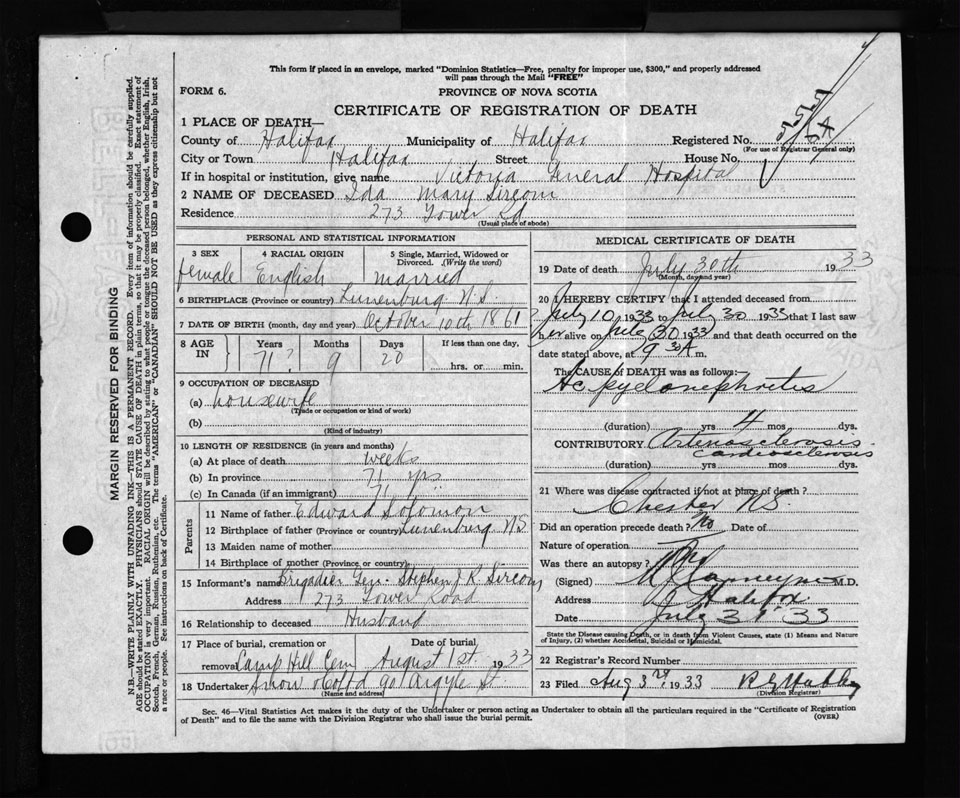 This form if placed in an envelope, marked "Dominion Statistics—Free, penalty for improper use, $300," and properly addressed
will pass through the Mail "FREE"
FORM 6.
PROVINCE OF NOVA SCOTIA
CERTIFICATE OF REGISTRATION OF DEATH
1 PLACE OF DEATH—
County of Halifax Municipality of Halifax Registered No.
(For use of Registrar General only)
City or Town Halifax Street House No.
If in hospital or institution, give name Victoria General Hospital
2 NAME OF DECEASED Ida Mary Sircom
Residence 273 Tower Rd
(Usual place of abode)
PERSONAL AND STATISTICAL INFORMATION
3 SEX 4 RACIAL ORIGIN 5 Single, Married, Widowed or
Divorced. (Write the word)
female English married
6 BIRTHPLACE (Province or country) Lunenburg N.S.
7 DATE OF BIRTH (month, day and year) October 10th 1861
8 AGE IN Years Months Days If less than one day,
71? 9 20 hrs. or min.
9 OCCUPATION OF DECEASED
(a) housewife
(Trade or occupation or kind of work)
(b)
(Kind of industry)
10 LENGTH OF RESIDENCE (in years and months)
(a) At place of death weeks
(b) In province 71 yrs.
(c) In Canada (if an immigrant) 71
Parents
11 Name of father Edward Solomon
12 Birthplace of father (Province or country) Lunenburg N.S.
13 Maiden name of mother
14 Birthplace of mother (Province or country)
15 Informant's name Brigadier Gen. Stephen J. R. Sircom
Address 273 Tower Road
16 Relationship to deceased Husband
17 Place of burial, cremation or Date of burial,
removal Camp Hill Cem August 1st 1933
18 Undertaker Snow & Co Ltd 90 Argyle St.
(Name and address)
MEDICAL CERTIFICATE OF DEATH
19 Date of death July 30th 1933
(Month, day and year)
20 I HEREBY CERTIFY that I attended deceased from
July 10 1933 to July 30 1933 that I last saw
her alive on July 30 1933 and that death occurred on the
date stated above, at 9 30 A m.
The CAUSE OF DEATH was as follows:
Ac. pyelonephritis
(duration) yrs 4 mos dys.
CONTRIBUTORY Arteriosclerosis
Cardiosclerosis
(duration) yrs mos dys.
21 Where was disease contracted if not at place of death?
Chester N.S.
Did an operation precede death? No Date of
Nature of operation
Was there an autopsy? No
(Signed) M.D.
Address Halifax
Date July 31 33
State the Disease causing Death, or in death from Violent Causes, state (1) Means and Nature
of Injury, (2) whether Accidental, Suicidal or Homicidal.
22 Registrar's Record Number
23 Filed Aug 3rd 1933
(Division Registrar)
Sec. 46—Vital Statistics Act makes it the duty of the Undertaker or person acting as Undertaker to obtain all the particulars required in the "Certificate of Registration
of Death" and to file the same with the Division Registrar who shall issue the burial permit.
(OVER)
MARGIN RESERVED FOR BINDING
N.B.—WRITE PLAINLY WITH UNFADING INK—THIS IS A PERMANENT RECORD. Every item of information should be carefully supplied.
AGE should be stated EXACTLY. PHYSICIANS should STATE CAUSE OF DEATH in plain terms, so that it may be properly classified. Exact statement of
OCCUPATION is very important. RACIAL ORIGIN will be described by stating to what people or tongue the deceased person belonged, whether English, Irish,
Scotch, French, German, Russian, Ruthenian, etc. The terms "AMERICAN" or "CANADIAN" SHOULD NOT BE USED as they express citizenship but not
a race or people. See instructions on back of Certificate.